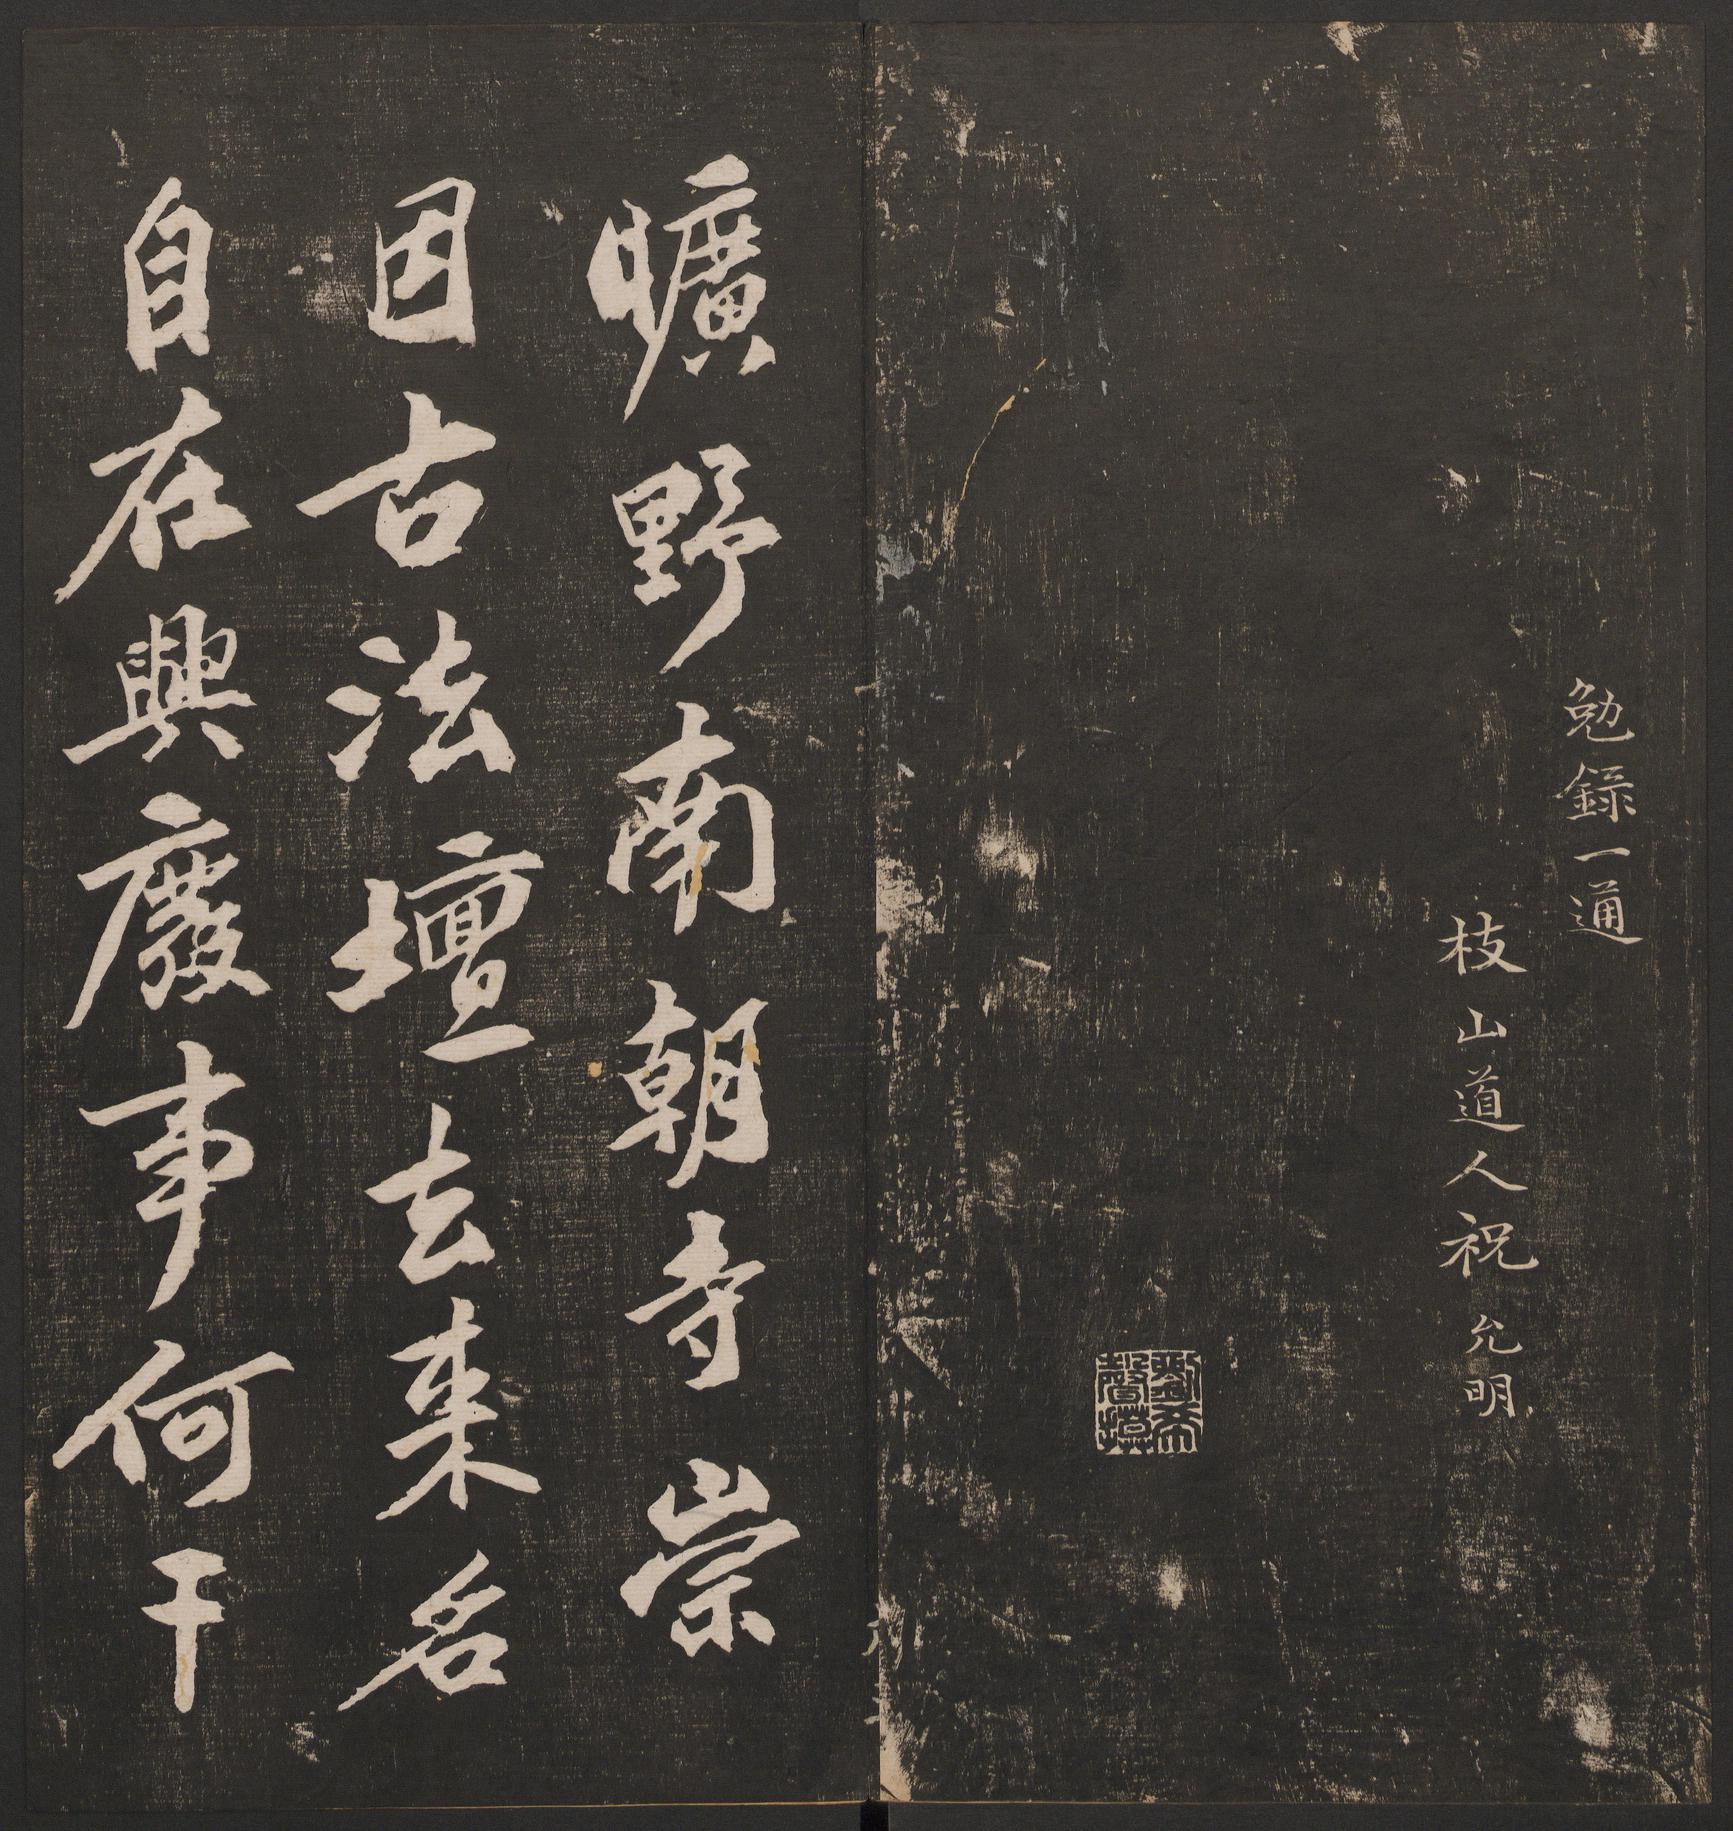 勉錄一通
枝山道人祝允明
曠野南朝寺崇
因古法壇去来名
自在興廢事何干